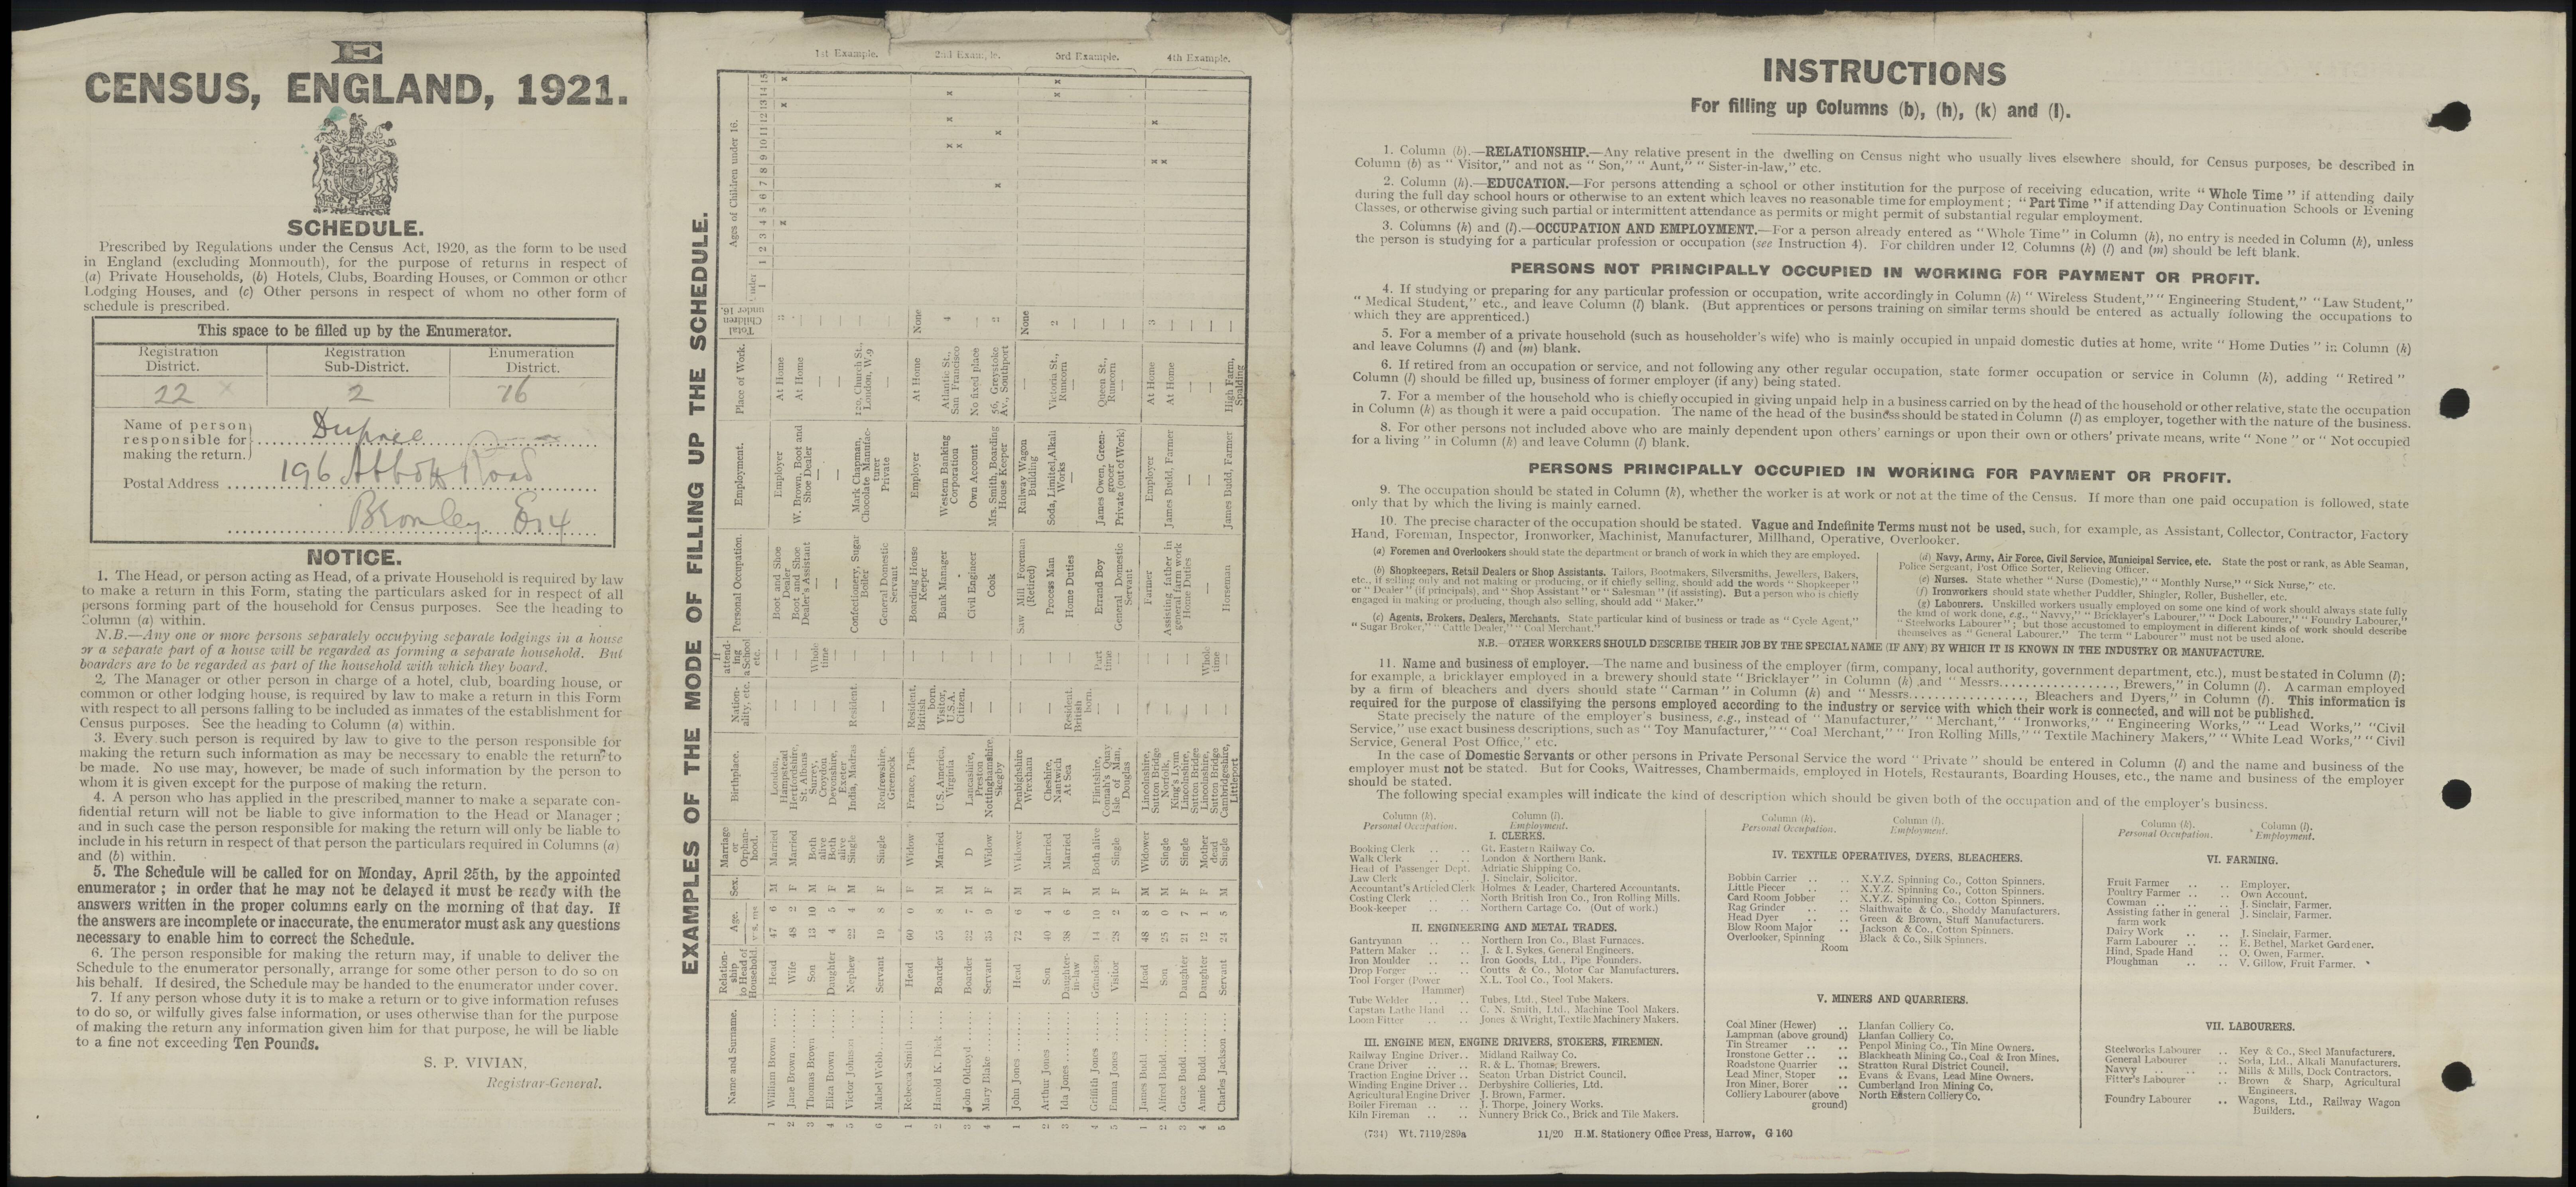 E
CENSUS, ENGLAND, 1921.
SCHEDULE.
Prescribed by Regulations under the Census Act, 1920, as the form to be used
in England (excluding Monmouth), for the purpose of returns in respect of
(a) Private Households, (b) Hotels, Clubs, Boarding Houses, or Common or other
Lodging Houses, and (c) Other persons in respect of whom no other form of
schedule is prescribed.
This space to be filled up by the Enumerator.
Registration District. Registration Sub-District. Enumeration District.
22 x 2 76
Name of person
responsible for
making the return.
Postal Address 196 Abbott Road
Bromley E14
NOTICE.
1. The Head, or person acting as Head, of a private Household is required by law
to make a return in this Form, stating the particulars asked for in respect of all
persons forming part of the household for Census purposes. See the heading to
Column (a) within.
N.B.—Any one or more persons separately occupying separate lodgings in a house
or a separate part of a house will be regarded as forming a separate household. But
boarders are to be regarded as part of the household with which they board.
2. The Manager or other person in charge of a hotel, club, boarding house, or
common or other lodging house, is required by law to make a return in this Form
with respect to all persons falling to be included as inmates of the establishment for
Census purposes. See the heading to Column (a) within.
3. Every such person is required by law to give to the person responsible for
making the return such information as may be necessary to enable the return to
be made. No use may, however, be made of such information by the person to
whom it is given except for the purpose of making the return.
4. A person who has applied in the prescribed manner to make a separate con-
fidential return will not be liable to give information to the Head or Manager ;
and in such case the person responsible for making the return will only be liable to
include in his return in respect of that person the particulars required in Columns (a)
and (b) within.
5. The Schedule will be called for on Monday, April 25th, by the appointed
enumerator ; in order that he may not be delayed it must be ready with the
answers written in the proper columns early on the morning of that day. If
the answers are incomplete or inaccurate, the enumerator must ask any questions
necessary to enable him to correct the Schedule.
6. The person responsible for making the return may, if unable to deliver the
Schedule to the enumerator personally, arrange for some other person to do so on
his behalf. If desired, the Schedule may be handed to the enumerator under cover.
7. If any person whose duty it is to make a return or to give information refuses
to do so, or wilfully gives false information, or uses otherwise than for the purpose
of making the return any information given him for that purpose, he will be liable
to a fine not exceeding Ten Pounds.
S. P. VIVIAN,
Registrar-General.
EXAMPLES OF THE MODE OF FILLING UP THE SCHEDULE.
Name and Surname. Relation-ship to Head of Household. Age. Sex. Marriage or Orphan-hood. Birthplace. Nation-ality, etc. If attend-ing a School etc. Personal Occupation. Employment. Place of Work. Total Children under 16. Ages of Children under 16.
Under 1 1 2 3 4 5 6 7 8 9 10 11 12 13 14 15
1st Example.
1 William Brown Head 47 6 M Married London, Hampstead — — Boot and Shoe Dealer Employer At Home 3 x x x
2 Jane Brown Wife 48 2 F Married Hertfordshire, St. Albans — — Boot and Shoe Dealer's Assistant W. Brown, Boot and Shoe Dealer At Home —
3 Thomas Brown Son 13 10 M Both alive Surrey, Croydon — Whole time — — — —
4 Eliza Brown Daughter 4 5 F Both alive Devonshire, Exeter — — — — — —
5 Victor Johnson Nephew 22 4 M Single India, Madras Resident. — Confectionery, Sugar Boiler Mark Chapman, Chocolate Manufac-turer 120, Church St., London, W.9 —
6 Mabel Webb Servant 19 8 F Single Renfrewshire, Greenock — — General Domestic Servant Private — —
2nd Example.
1 Rebecca Smith Head 60 0 F Widow France, Paris Resident, British born. — Boarding House Keeper Employer At Home None
2 Harold K. Dick Boarder 55 8 M Married U.S. America, Virginia Visitor, U.S.A. Citizen. — Bank Manager Western Banking Corporation Atlantic St., San Francisco 4 x x x
3 John Oldroyd Boarder 32 7 M D Lancashire, Preston — — Civil Engineer Own Account No fixed place — x
4 Mary Blake Servant 35 9 F Widow Nottinghamshire, Skegby — — Cook Mrs. Smith, Boarding House Keeper 56, Greystoke Av., Southport 2 x x
3rd Example.
1 John Jones Head 72 6 M Widower Denbighshire Wrexham — — Saw Mill Foreman (Retired) Railway Wagon Building — None
2 Arthur Jones Son 40 4 M Married Cheshire, Nantwich — — Process Man Soda, Limited, Alkali Works Victoria St., Runcorn 2 x x
3 Ida Jones Daughter-in-law 38 6 F Married At Sea Resident. British born. — Home Duties — — —
4 Griffith Jones Grandson 14 10 M Both alive Flintshire, Connah's Quay — Part time Errand Boy James Owen, Green-grocer Queen St., Runcorn —
5 Emma Jones Visitor 28 2 F Single Isle of Man, Douglas — — General Domestic Servant Private (out of Work) — —
4th Example.
1 James Budd Head 48 8 M Widower Lincolnshire, Sutton Bridge — — Farmer Employer At Home 3 x x x
2 Alfred Budd Son 25 0 M Single Norfolk, King's Lynn — — Assisting father in general farm work James Budd, Farmer At Home —
3 Grace Budd Daughter 21 7 F Single Lincolnshire, Sutton Bridge — — Home Duties — — —
4 Annie Budd Daughter 12 1 F Mother dead Lincolnshire, Sutton Bridge — Whole time — — — —
5 Charles Jackson Servant 24 5 M Single Cambridgeshire, Littleport — — Horseman James Budd, Farmer High Farm, Spalding —
INSTRUCTIONS
For filling up Columns (b), (h), (k) and (l).
1. Column (b).—RELATIONSHIP.—Any relative present in the dwelling on Census night who usually lives elsewhere should, for Census purposes, be described in
Column (b) as “ Visitor,” and not as “ Son,” “ Aunt,” “ Sister-in-law,” etc.
2. Column (h).—EDUCATION.—For persons attending a school or other institution for the purpose of receiving education, write “ Whole Time ” if attending daily
during the full day school hours or otherwise to an extent which leaves no reasonable time for employment ; “ Part Time ” if attending Day Continuation Schools or Evening
Classes, or otherwise giving such partial or intermittent attendance as permits or might permit of substantial regular employment.
3. Columns (k) and (l).—OCCUPATION AND EMPLOYMENT.—For a person already entered as “Whole Time” in Column (h), no entry is needed in Column (k), unless
the person is studying for a particular profession or occupation (see Instruction 4). For children under 12, Columns (k) (l) and (m) should be left blank.
PERSONS NOT PRINCIPALLY OCCUPIED IN WORKING FOR PAYMENT OR PROFIT.
4. If studying or preparing for any particular profession or occupation, write accordingly in Column (k) “ Wireless Student,” “ Engineering Student,” “Law Student,”
“ Medical Student,” etc., and leave Column (l) blank. (But apprentices or persons training on similar terms should be entered as actually following the occupations to
which they are apprenticed.)
5. For a member of a private household (such as householder's wife) who is mainly occupied in unpaid domestic duties at home, write “ Home Duties ” in Column (k)
and leave Columns (l) and (m) blank.
6. If retired from an occupation or service, and not following any other regular occupation, state former occupation or service in Column (k), adding “ Retired ”
Column (l) should be filled up, business of former employer (if any) being stated.
7. For a member of the household who is chiefly occupied in giving unpaid help in a business carried on by the head of the household or other relative, state the occupation
in Column (k) as though it were a paid occupation. The name of the head of the business should be stated in Column (l) as employer, together with the nature of the business.
8. For other persons not included above who are mainly dependent upon others' earnings or upon their own or others' private means, write “ None ” or “ Not occupied
for a living ” in Column (k) and leave Column (l) blank.
PERSONS PRINCIPALLY OCCUPIED IN WORKING FOR PAYMENT OR PROFIT.
9. The occupation should be stated in Column (k), whether the worker is at work or not at the time of the Census. If more than one paid occupation is followed, state
only that by which the living is mainly earned.
10. The precise character of the occupation should be stated. Vague and Indefinite Terms must not be used, such, for example, as Assistant, Collector, Contractor, Factory
Hand, Foreman, Inspector, Ironworker, Machinist, Manufacturer, Millhand, Operative, Overlooker.
(a) Foremen and Overlookers should state the department or branch of work in which they are employed.
(b) Shopkeepers, Retail Dealers or Shop Assistants. Tailors, Bootmakers, Silversmiths, Jewellers, Bakers,
etc., if selling only and not making or producing, or if chiefly selling, should add the words “ Shopkeeper ”
or “ Dealer ” (if principals), and “ Shop Assistant ” or “ Salesman ” (if assisting). But a person who is chiefly
engaged in making or producing, though also selling, should add “ Maker.”
(c) Agents, Brokers, Dealers, Merchants. State particular kind of business or trade as “ Cycle Agent,”
“ Sugar Broker,” “ Cattle Dealer,” “ Coal Merchant.”
(d) Navy, Army, Air Force, Civil Service, Municipal Service, etc. State the post or rank, as Able Seaman,
Police Sergeant, Post Office Sorter, Relieving Officer.
(e) Nurses. State whether “ Nurse (Domestic),” “ Monthly Nurse,” “ Sick Nurse,” etc.
(f) Ironworkers should state whether Puddler, Shingler, Roller, Busheller, etc.
(g) Labourers. Unskilled workers usually employed on some one kind of work should always state fully
the kind of work done, e.g., “ Navvy,” “ Bricklayer's Labourer,” “ Dock Labourer,” “ Foundry Labourer,”
“ Steelworks Labourer ” ; but those accustomed to employment in different kinds of work should describe
themselves as “ General Labourer.” The term “ Labourer ” must not be used alone.
N.B.— OTHER WORKERS SHOULD DESCRIBE THEIR JOB BY THE SPECIAL NAME (IF ANY) BY WHICH IT IS KNOWN IN THE INDUSTRY OR MANUFACTURE.
11. Name and business of employer.—The name and business of the employer (firm, company, local authority, government department, etc.), must be stated in Column (l);
for example, a bricklayer employed in a brewery should state “ Bricklayer ” in Column (k) and “ Messrs................, Brewers,” in Column (l). A carman employed
by a firm of bleachers and dyers should state “ Carman ” in Column (k) and “ Messrs................, Bleachers and Dyers,” in Column (l). This information is
required for the purpose of classifying the persons employed according to the industry or service with which their work is connected, and will not be published.
State precisely the nature of the employer's business, e.g., instead of “ Manufacturer,” “ Merchant,” “ Ironworks,” “ Engineering Works,” “ Lead Works,” “Civil
Service,” use exact business descriptions, such as “ Toy Manufacturer,” “ Coal Merchant,” “ Iron Rolling Mills,” “ Textile Machinery Makers,” “ White Lead Works,” “ Civil
Service, General Post Office,” etc.
In the case of Domestic Servants or other persons in Private Personal Service the word “ Private ” should be entered in Column (l) and the name and business of the
employer must not be stated. But for Cooks, Waitresses, Chambermaids, employed in Hotels, Restaurants, Boarding Houses, etc., the name and business of the employer
should be stated.
The following special examples will indicate the kind of description which should be given both of the occupation and of the employer's business.
Column (k). Personal Occupation. Column (l). Employment.
I. CLERKS.
Booking Clerk .. .. Gt. Eastern Railway Co.
Walk Clerk .. .. London & Northern Bank.
Head of Passenger Dept. Adriatic Shipping Co.
Law Clerk .. .. J. Sinclair, Solicitor.
Accountant's Articled Clerk Holmes & Leader, Chartered Accountants.
Costing Clerk .. .. North British Iron Co., Iron Rolling Mills.
Book-keeper .. .. Northern Cartage Co. (Out of work.)
II. ENGINEERING AND METAL TRADES.
Gantryman .. .. Northern Iron Co., Blast Furnaces.
Pattern Maker .. .. J. & I. Sykes, General Engineers.
Iron Moulder .. .. Iron Goods, Ltd., Pipe Founders.
Drop Forger .. .. Coutts & Co., Motor Car Manufacturers.
Tool Forger (Power Hammer) X.L. Tool Co., Tool Makers.
Tube Welder .. .. Tubes, Ltd., Steel Tube Makers.
Capstan Lathe Hand .. C. N. Smith, Ltd., Machine Tool Makers.
Loom Fitter .. .. Jones & Wright, Textile Machinery Makers.
III. ENGINE MEN, ENGINE DRIVERS, STOKERS, FIREMEN.
Railway Engine Driver .. Midland Railway Co.
Crane Driver .. .. R. & L. Thomas, Brewers.
Traction Engine Driver .. Seaton Urban District Council.
Winding Engine Driver .. Derbyshire Collieries, Ltd.
Agricultural Engine Driver J. Brown, Farmer.
Boiler Fireman .. .. J. Thorpe, Joinery Works.
Kiln Fireman .. .. Nunnery Brick Co., Brick and Tile Makers.
Column (k). Personal Occupation. Column (l). Employment.
IV. TEXTILE OPERATIVES, DYERS, BLEACHERS.
Bobbin Carrier .. .. X.Y.Z. Spinning Co., Cotton Spinners.
Little Piecer .. .. X.Y.Z. Spinning Co., Cotton Spinners.
Card Room Jobber .. X.Y.Z. Spinning Co., Cotton Spinners.
Rag Grinder .. .. Slaithwaite & Co., Shoddy Manufacturers.
Head Dyer .. .. Green & Brown, Stuff Manufacturers.
Blow Room Major .. Jackson & Co., Cotton Spinners.
Overlooker, Spinning Room Black & Co., Silk Spinners.
V. MINERS AND QUARRIERS.
Coal Miner (Hewer) .. Llanfan Colliery Co.
Lampman (above ground) Llanfan Colliery Co.
Tin Streamer .. .. Penpol Mining Co., Tin Mine Owners.
Ironstone Getter .. .. Blackheath Mining Co., Coal & Iron Mines.
Roadstone Quarrier .. Stratton Rural District Council.
Lead Miner, Stoper .. Evans & Evans, Lead Mine Owners.
Iron Miner, Borer .. Cumberland Iron Mining Co.
Colliery Labourer (above ground) North Eastern Colliery Co.
Column (k). Personal Occupation. Column (l). Employment.
VI. FARMING.
Fruit Farmer .. .. Employer.
Poultry Farmer .. .. Own Account.
Cowman .. .. J. Sinclair, Farmer.
Assisting father in general farm work J. Sinclair, Farmer.
Dairy Work .. .. J. Sinclair, Farmer.
Farm Labourer .. .. E. Bethel, Market Gardener.
Hind, Spade Hand .. O. Owen, Farmer.
Ploughman .. .. V. Gillow, Fruit Farmer.
VII. LABOURERS.
Steelworks Labourer .. Key & Co., Steel Manufacturers.
General Labourer .. Soda, Ltd., Alkali Manufacturers.
Navvy .. .. Mills & Mills, Dock Contractors.
Fitter's Labourer .. Brown & Sharp, Agricultural Engineers.
Foundry Labourer .. Wagons, Ltd., Railway Wagon Builders.
(734) Wt. 7119/289a 11/20 H.M. Stationery Office Press, Harrow, G 160